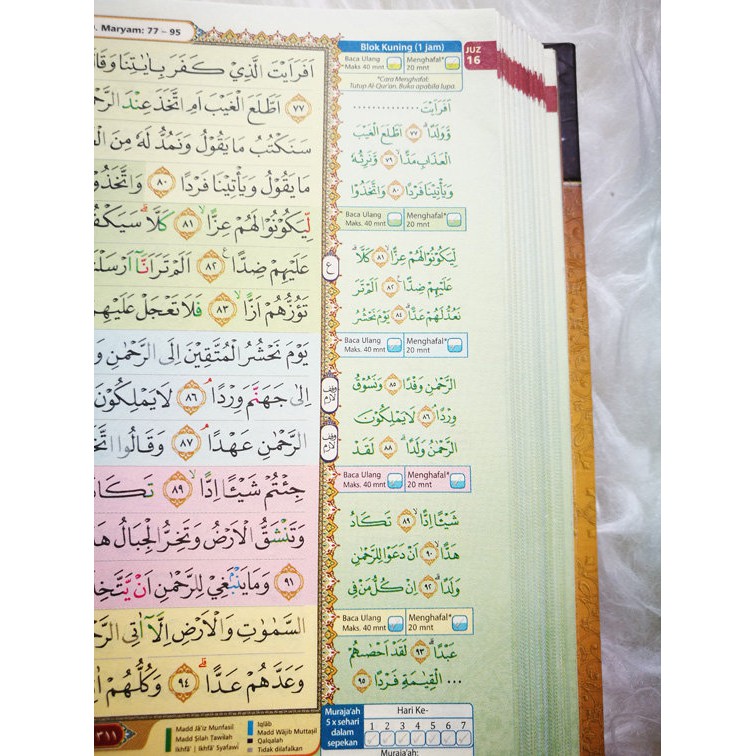 . Maryam: 77 – 95
اَفَرَاَيْتَ الَّذِيْ كَفَرَ بِاٰيٰتِنَا وَقَالَ
﴿٧٧﴾ اَطَّلَعَ الْغَيْبَ اَمِ اتَّخَذَ عِنْدَ
سَنَكْتُبُ مَا يَقُوْلُ وَنَمُدُّ لَهٗ مِنَ
مَا يَقُوْلُ وَيَأْتِيْنَا فَرْدًا ﴿٨٠﴾ وَاتَّخَذُوْا
لِّيَكُوْنُوْا لَهُمْ عِزًّا ۙ ﴿٨١﴾ كَلَّا ۗ
عَلَيْهِمْ ضِدًّا ࣖ ﴿٨٢﴾ اَلَمْ تَرَ اَنَّآ
تَؤُزُّهُمْ اَزًّا ۙ ﴿٨٣﴾ فَلَا تَعْجَلْ عَلَيْهِمْ
يَوْمَ نَحْشُرُ الْمُتَّقِيْنَ اِلَى الرَّحْمٰنِ
اِلٰى جَهَنَّمَ وِرْدًا ۘ ﴿٨٦﴾ لَا يَمْلِكُوْنَ
الرَّحْمٰنِ عَهْدًا ۘ ﴿٨٧﴾ وَقَالُوا
جِئْتُمْ شَيْـًٔا اِدًّا ۙ ﴿٨٩﴾ تَكَادُ
وَتَنْشَقُّ الْاَرْضُ وَتَخِرُّ الْجِبَالُ
﴿٩١﴾ وَمَا يَنْۢبَغِيْ لِلرَّحْمٰنِ اَنْ يَّتَّخِذَ
السَّمٰوٰتِ وَالْاَرْضِ اِلَّآ اٰتِى
وَعَدَّهُمْ عَدًّا ۗ ﴿٩٤﴾ وَكُلُّهُمْ
٣١١
Madd Jā'iz Munfasil
Madd Ṣilah Ṭawilah
Ikhfā' | Ikhfā' Syafawi
Iqlāb
Madd Wājib Muttaṣil
Qalqalah
Tidak dilafalkan
Blok Kuning (1 jam)
JUZ
16
Baca Ulang Menghafal*
Maks. 40 mnt 20 mnt
*Cara Menghafal:
Tutup Al-Qur'an. Buka apabila lupa.
اَفَرَاَيْتَ ..............
وَّوَلَدًا ۗ ﴿٧٧﴾ اَطَّلَعَ الْغَيْبَ
الْعَذَابِ مَدًّا ۙ ﴿٧٩﴾ وَّنَرِثُهٗ
وَيَأْتِيْنَا فَرْدًا ﴿٨٠﴾ وَاتَّخَذُوْا
Baca Ulang Menghafal*
Maks. 40 mnt 20 mnt
لِّيَكُوْنُوْا لَهُمْ عِزًّا ۙ ﴿٨١﴾ كَلَّا ۗ
عَلَيْهِمْ ضِدًّا ࣖ ﴿٨٢﴾ اَلَمْ تَرَ
نَعُدُّ لَهُمْ عَدًّا ۗ ﴿٨٤﴾ يَوْمَ نَحْشُرُ
Baca Ulang Menghafal*
Maks. 40 mnt 20 mnt
الرَّحْمٰنِ وَفْدًا ﴿٨٥﴾ وَنَسُوْقُ
وِرْدًا ۘ ﴿٨٦﴾ لَا يَمْلِكُوْنَ
الرَّحْمٰنُ وَلَدًا ۗ ﴿٨٨﴾ لَقَدْ
Baca Ulang Menghafal*
Maks. 40 mnt 20 mnt
شَيْـًٔا اِدًّا ۙ ﴿٨٩﴾ تَكَادُ
هَدًّا ۙ ﴿٩٠﴾ اَنْ دَعَوْا لِلرَّحْمٰنِ
وَلَدًا ۗ ﴿٩٢﴾ اِنْ كُلُّ مَنْ فِى
Baca Ulang Menghafal*
Maks. 40 mnt 20 mnt
عَبْدًا ۗ ﴿٩٣﴾ لَقَدْ اَحْصٰىهُمْ
... الْقِيٰمَةِ فَرْدًا ﴿٩٥﴾
Muraja'ah
5 x sehari
dalam
sepekan
Hari Ke-
1 2 3 4 5 6 7
Muraja'ah: